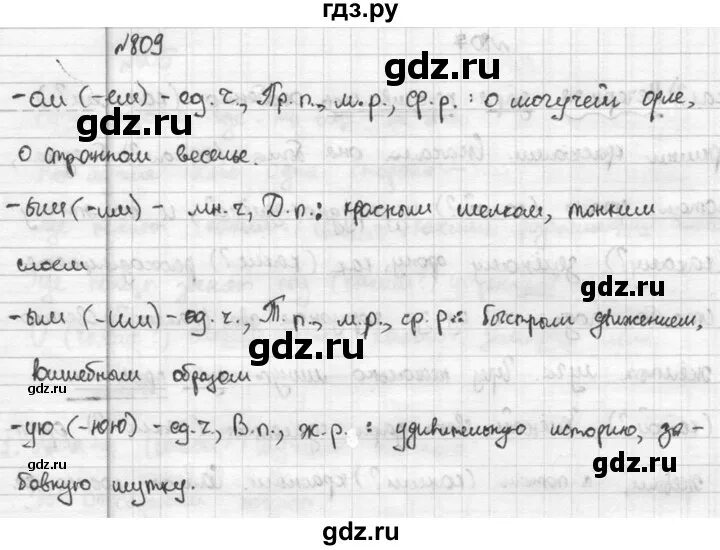 гдз.ру
№809
gdz.ru
-ом (-ем) - ед.ч., Пр.п., м.р., ср.р.: о могучем орле,
gdz.ru
о странном веселье.
-ым (-им) - мн.ч, Д.п.: красным шелкам, тонким
слоем
gdz.ru
-ым (-им) - ед.ч., Т.п., м.р., ср.р.: быстрым движением,
gdz.ru
волшебным образом
-ую (-юю) - ед.ч, В.п., ж.р.: удивительную историю, за-
gdz.ru
бавную шутку.
gdz.ru